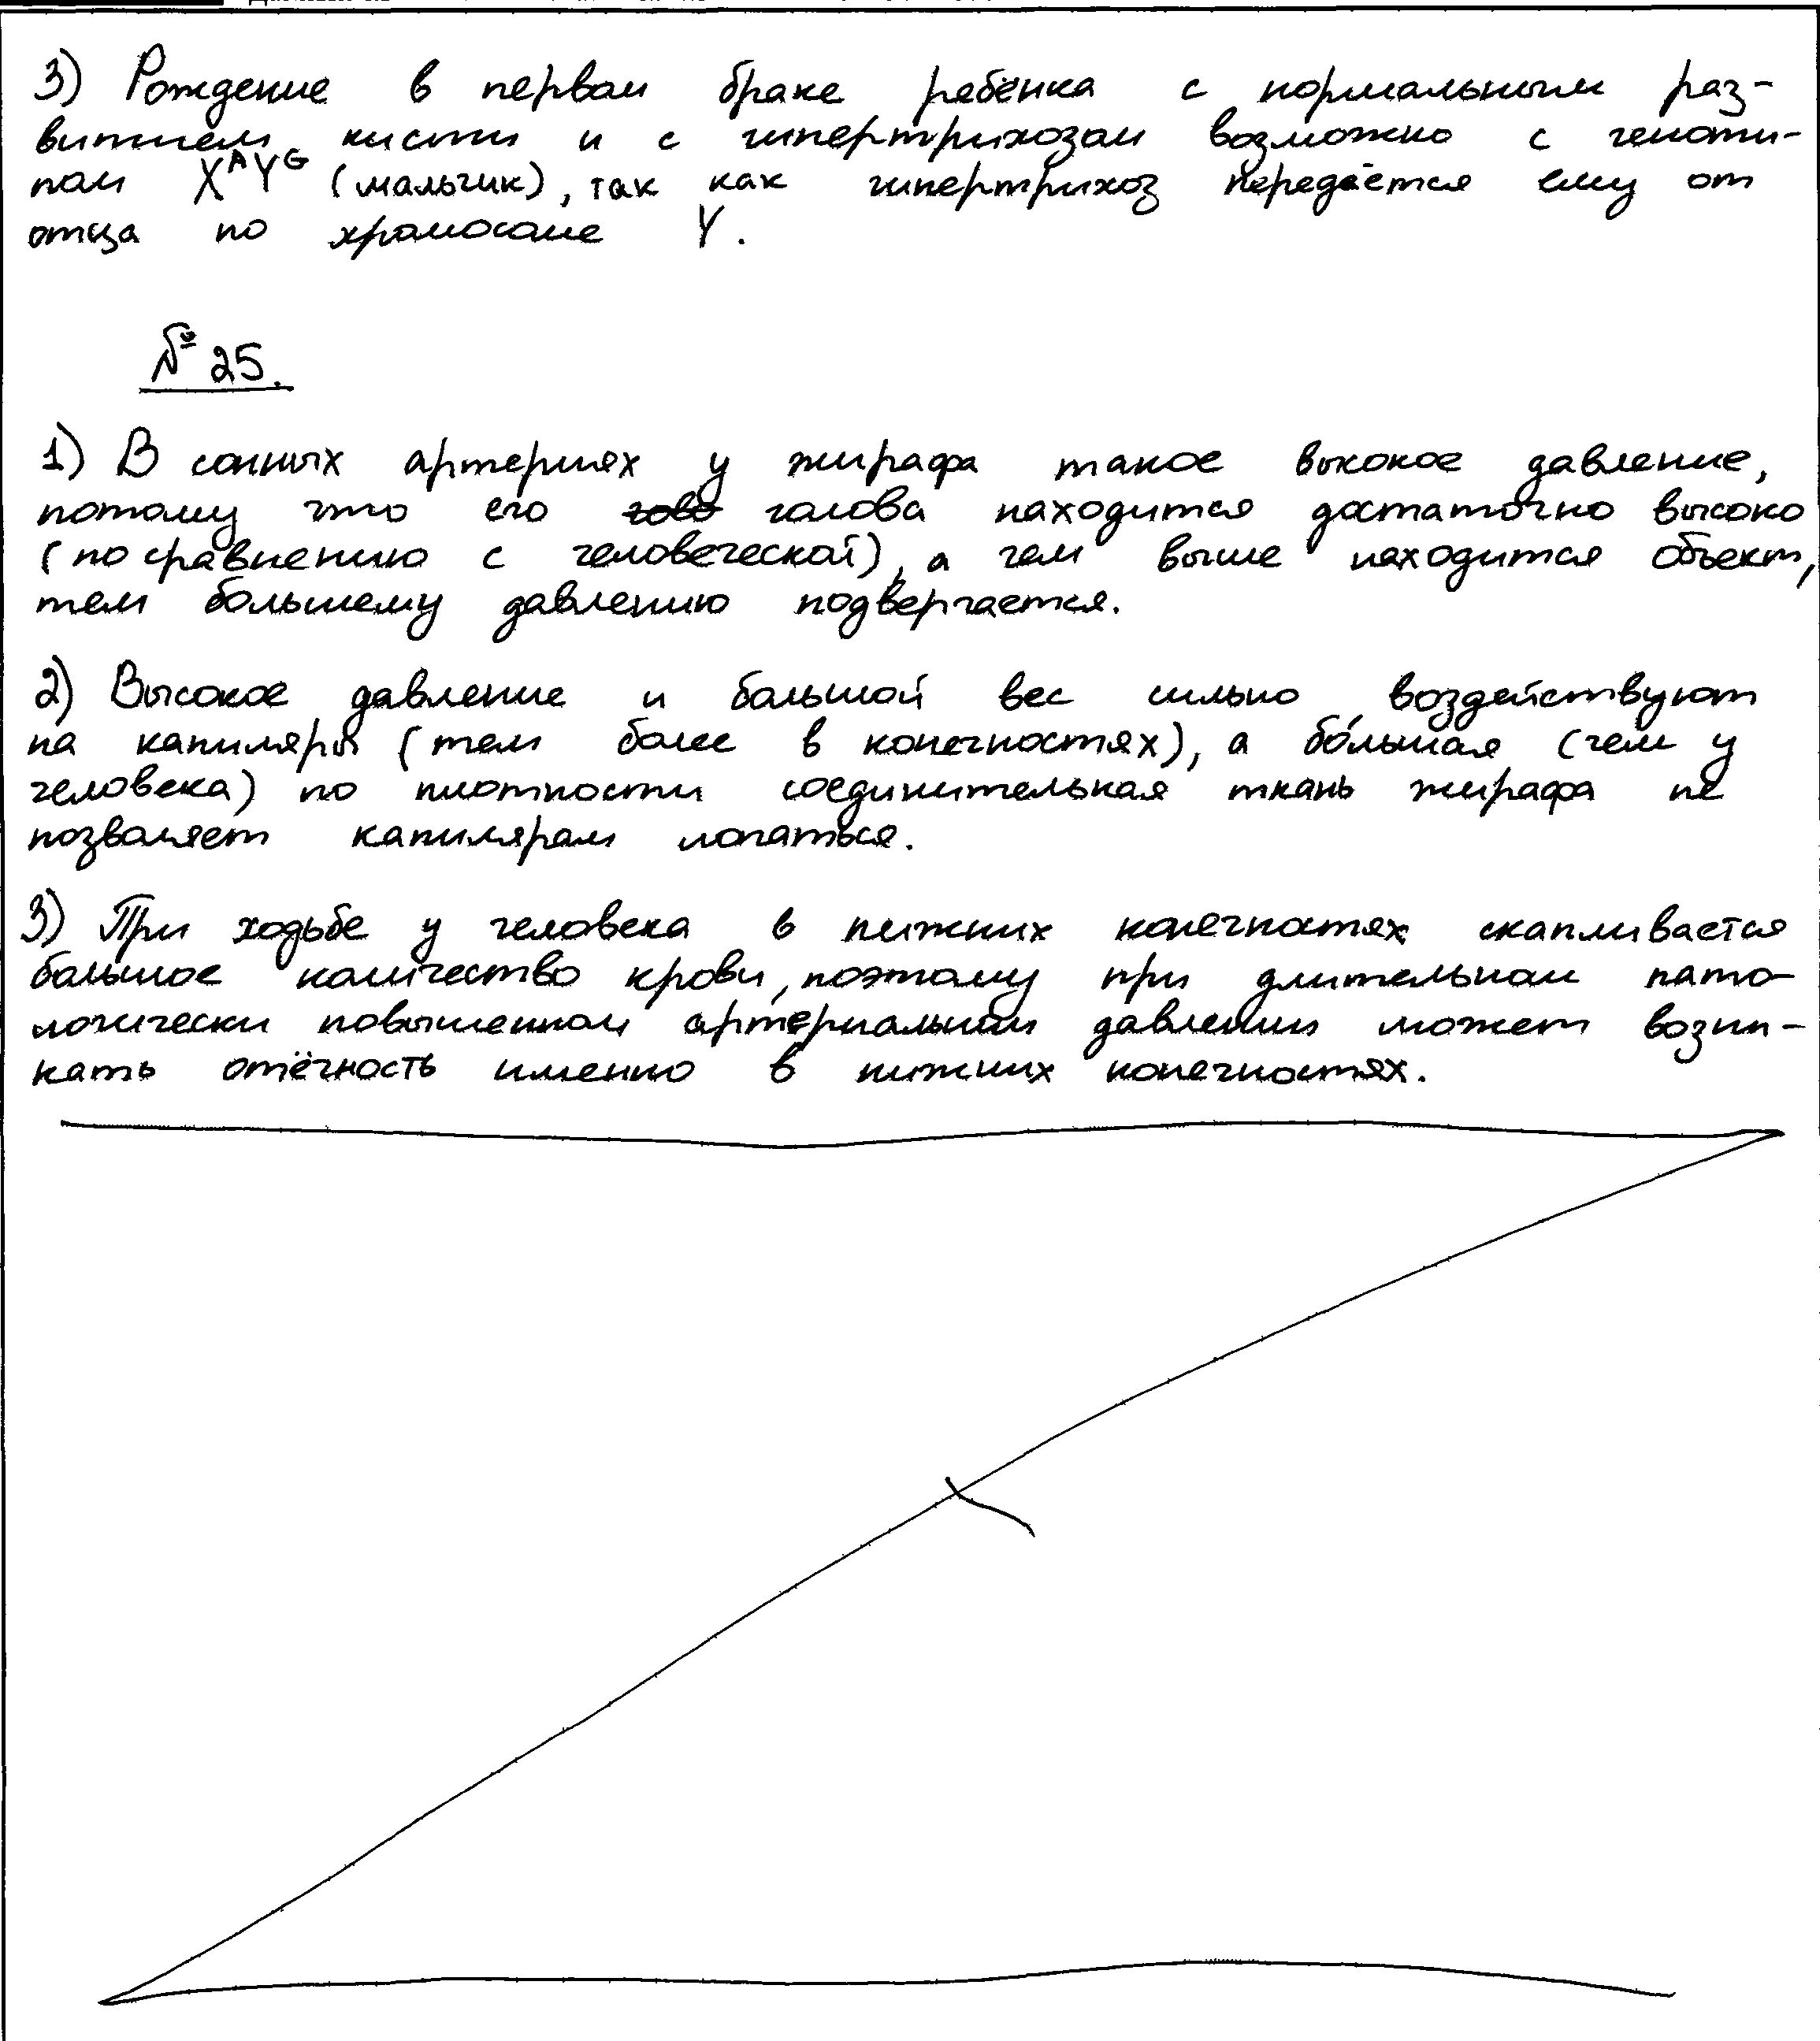 3) Рождение в первом браке ребёнка с нормальным раз-
витием кисти и с гипертрихозом возможно с геноти-
пом XᴬYᴳ (мальчик), так как гипертрихоз передаётся ему от
отца по хромосоме Y.
№ 25.
1) В сонных артериях у жирафа такое высокое давление,
потому что его голова находится достаточно высоко
(по сравнению с человеческой), а чем выше находится объект,
тем большему давлению подвергается.
2) Высокое давление и большой вес сильно воздействуют
на капиляры (тем более в конечностях), а бо́льшая (чем у
человека) по плотности соединительная ткань жирафа не
позволяет капилярам лопаться.
3) При ходьбе у человека в нижних конечностях скапливается
большое количество крови, поэтому при длительном пато-
логически повышенном артериальном давлении может возни-
кать отёчность именно в нижних конечностях.